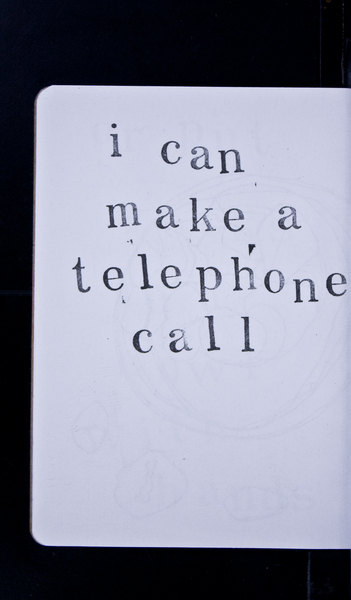 i can
make a
telephone
call